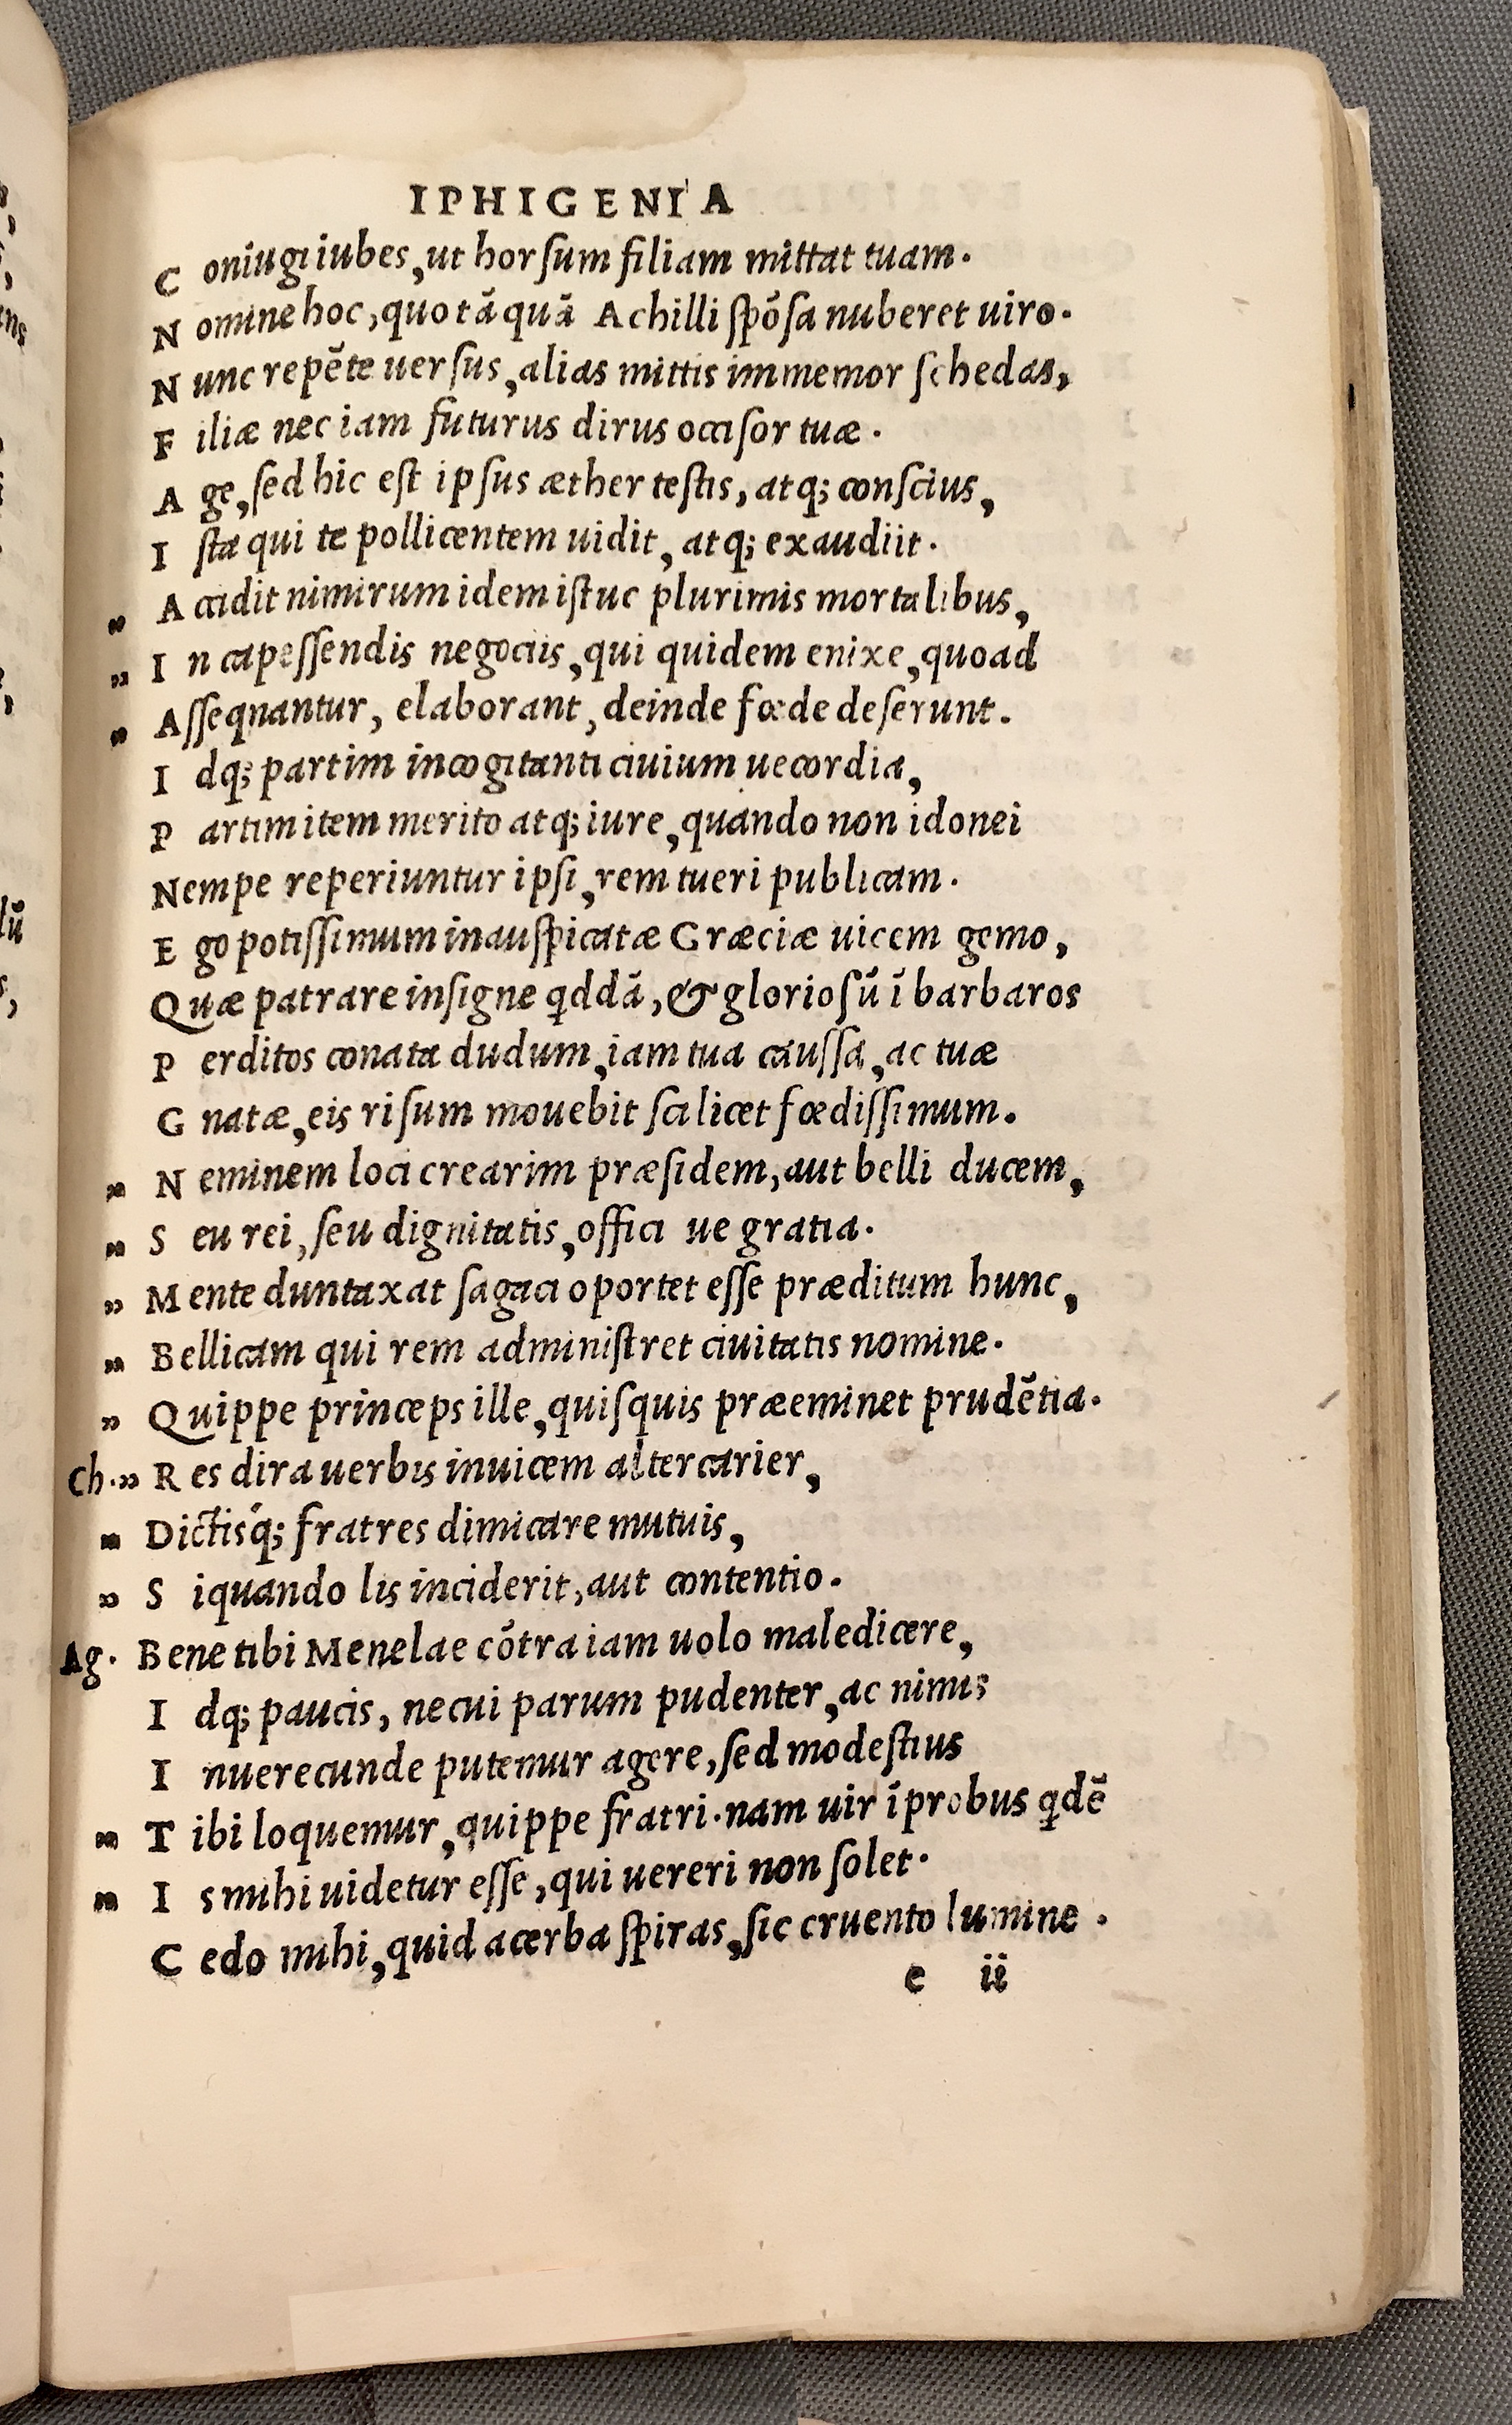 IPHIGENIA
Coniugi iubes, ut horſum filiam mittat tuam.
Nomine hoc, quo tā quā Achilli ſpōſa nuberet uiro.
Nunc repēte uerſus, alias mittis immemor ſchedas,
Filiæ nec iam futurus dirus occiſor tuæ.
Age, ſed hic eſt ipſus æther teſtis, atq; conſcius,
Iſta qui te pollicentem uidit, atq; exaudiit.
„ Accidit nimirum idem iſtuc plurimis mortalibus,
„ In capeſſendis negociis, qui quidem enixe, quoad
„ Aſſequantur, elaborant, deinde fœde deſerunt.
Idq; partim incogitanti ciuium uecordia,
Partim item merito atq; iure, quando non idonei
Nempe reperiuntur ipſi, rem tueri publicam.
Ego potiſſimum inauſpicatæ Græciæ uicem gemo,
Quæ patrare inſigne qddā, & glorioſū ī barbaros
Perditos conata dudum, iam tua cauſſa, ac tuæ
Gnatæ, eis riſum mouebit ſcilicet fœdiſſimum.
„ Neminem loci crearim præſidem, aut belli ducem,
„ Seu rei, ſeu dignitatis, offici ue gratia.
„ Mente duntaxat ſagaci oportet eſſe præditum hunc,
„ Bellicam qui rem adminiſtret ciuitatis nomine.
„ Quippe princeps ille, quiſquis præeminet prudētia.
Ch. „ Res dira uerbis inuicem altercarier,
„ Dictisq́; fratres dimicare mutuis,
„ Siquando lis inciderit, aut contentio.
Ag. Bene tibi Menelae cōtra iam uolo maledicere,
Idq; paucis, ne cui parum pudenter, ac nimis
Inuerecunde putemur agere, ſed modeſtius
„ Tibi loquemur, quippe fratri. nam uir īprobus qdē
„ Is mihi uidetur eſſe, qui uereri non ſolet.
Cedo mihi, quid acerba ſpiras, ſic cruento lumine.
e ii